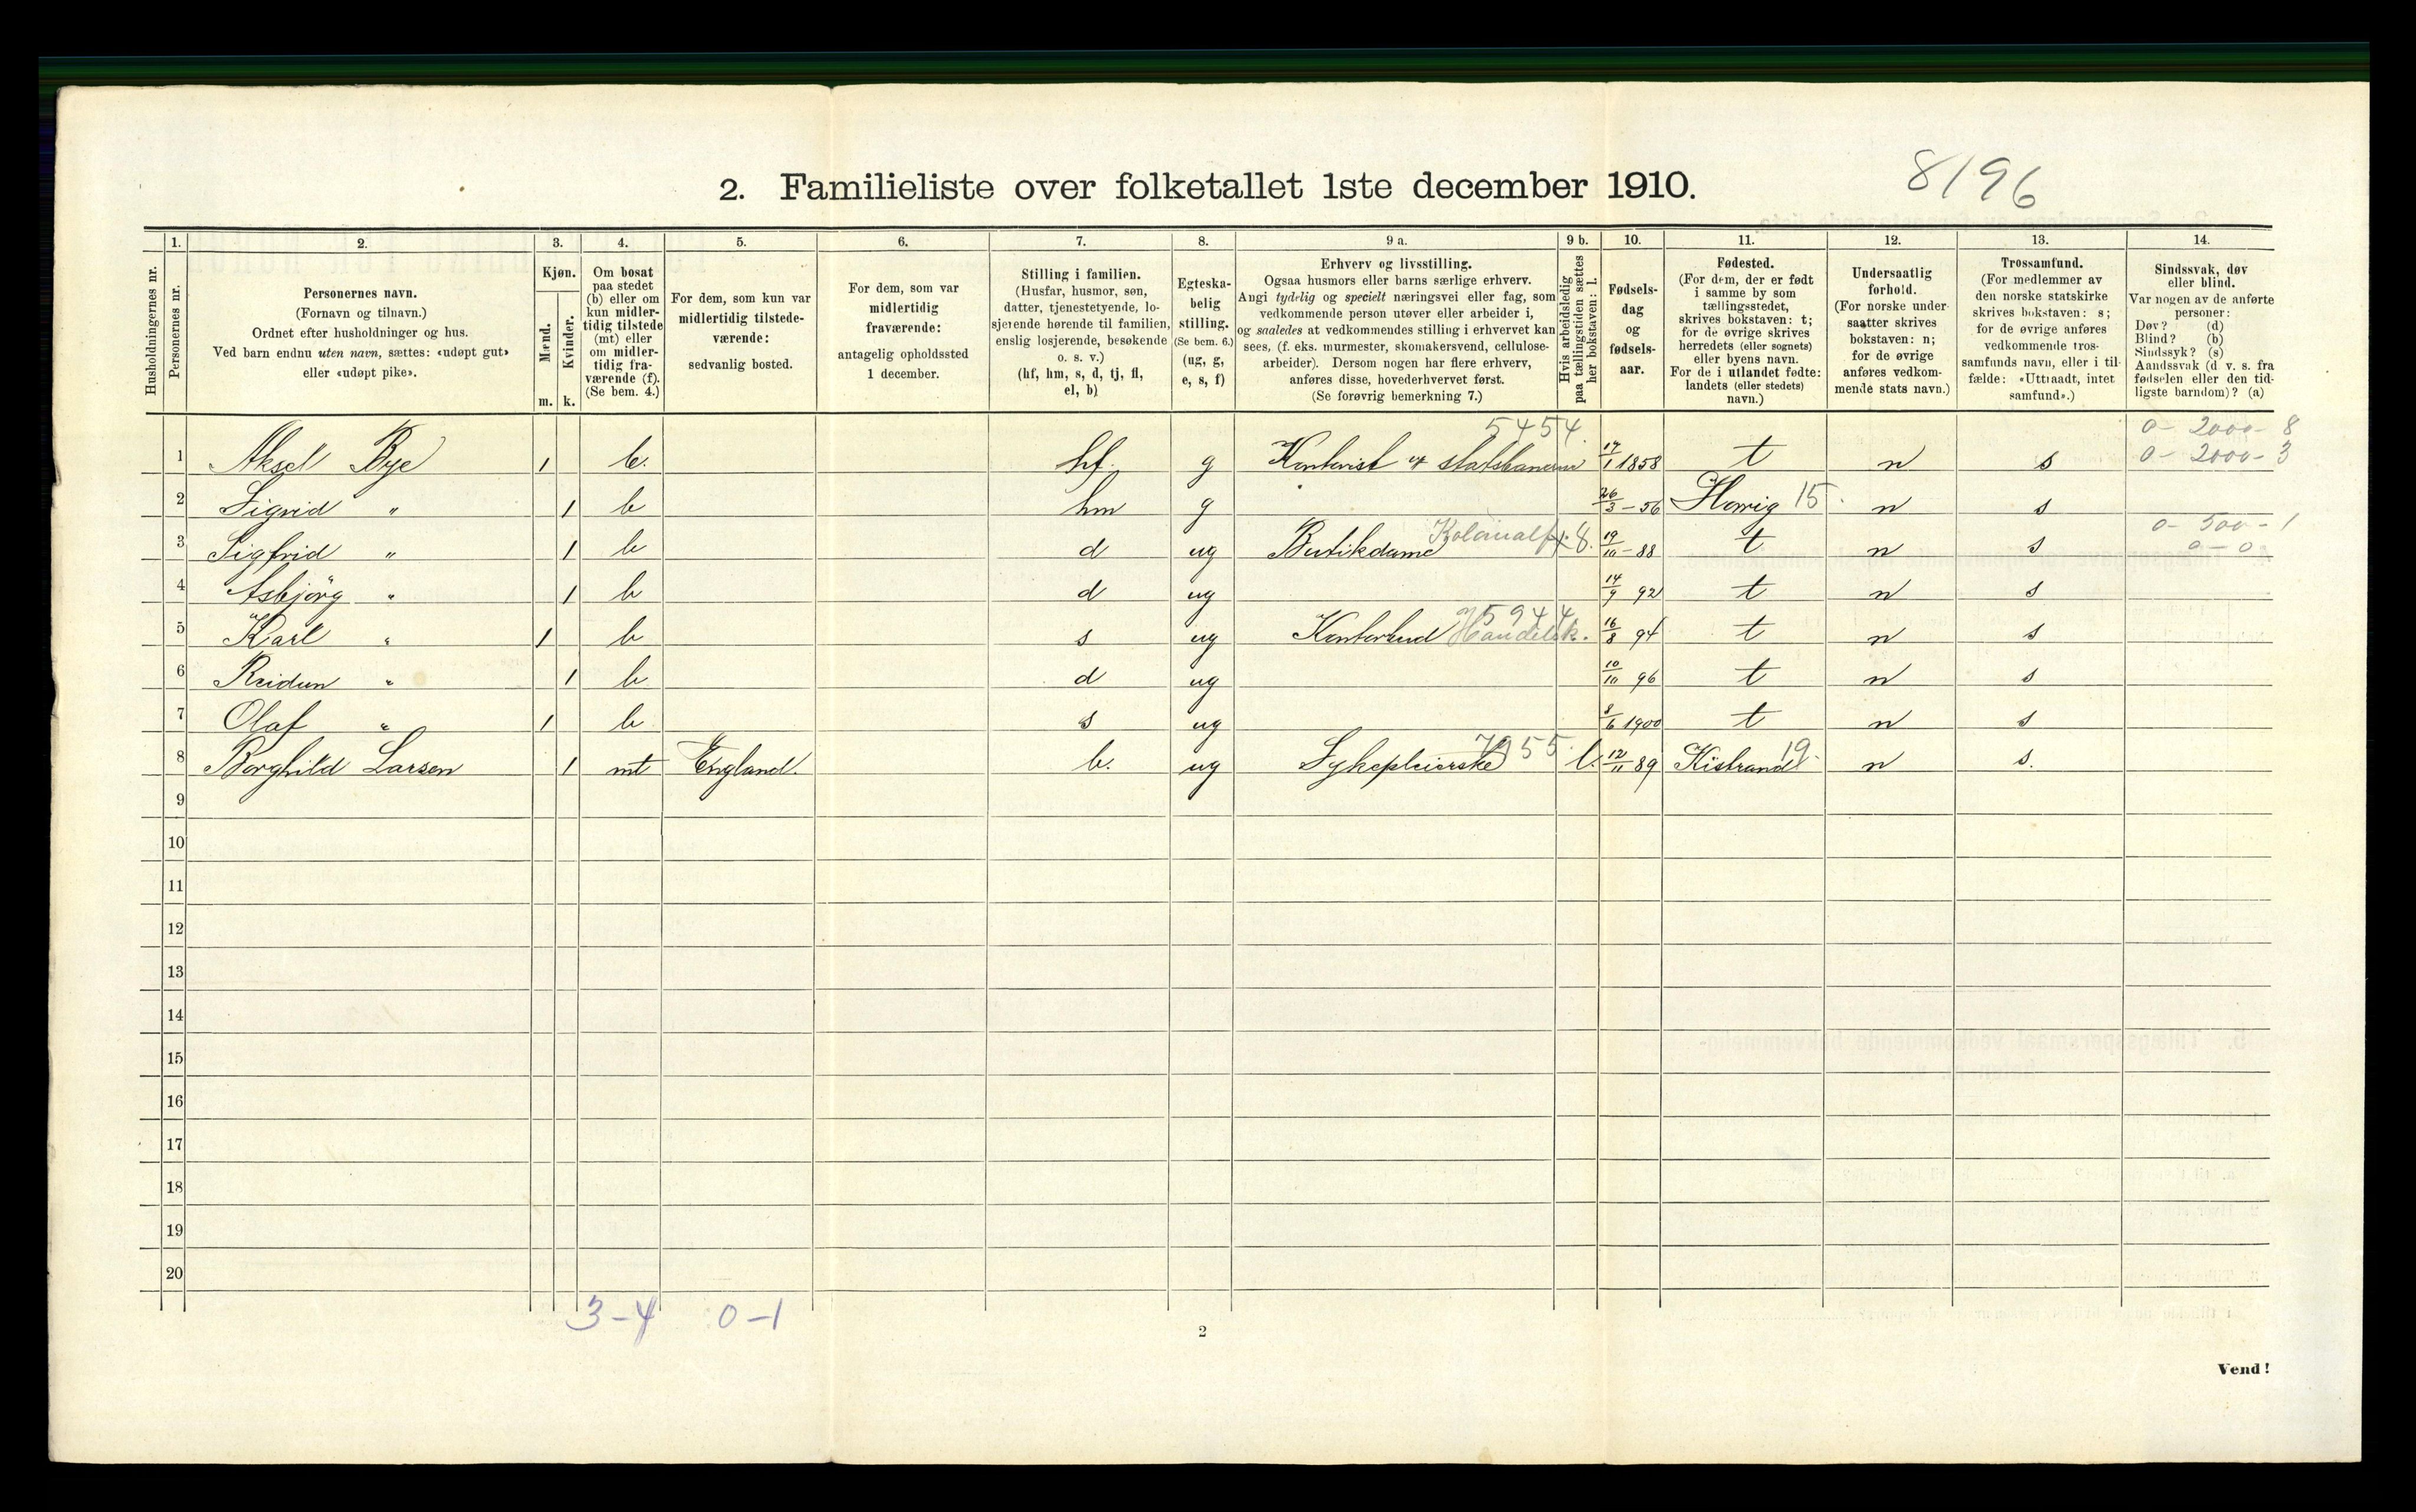 2. Familieliste over folketallet 1ste december 1910.
8196
Husholdningernes nr.
1. Personernes nr.
2. Personernes navn.
(Fornavn og tilnavn.)
Ordnet efter husholdninger og hus.
Ved barn endnu uten navn, sættes: «udøpt gut»
eller «udøpt pike».
3. Kjøn.
Mænd. m.
Kvinder. k.
4. Om bosat
paa stedet
(b) eller om
kun midler-
tidig tilstede
(mt) eller
om midler-
tidig fra-
værende (f).
(Se bem. 4.)
5. For dem, som kun var
midlertidig tilstede-
værende:
sedvanlig bosted.
6. For dem, som var
midlertidig
fraværende:
antagelig opholdssted
1 december.
7. Stilling i familien.
(Husfar, husmor, søn,
datter, tjenestetyende, lo-
sjerende hørende til familien,
enslig losjerende, besøkende
o. s. v.)
(hf, hm, s, d, tj, fl,
el, b)
8. Egteska-
belig
stilling.
(Se bem. 6.)
(ug, g,
e, s, f)
9 a. Erhverv og livsstilling.
Ogsaa husmors eller barns særlige erhverv.
Angi tydelig og specielt næringsvei eller fag, som
vedkommende person utøver eller arbeider i,
og saaledes at vedkommendes stilling i erhvervet kan
sees, (f. eks. murmester, skomakersvend, cellulose-
arbeider). Dersom nogen har flere erhverv,
anføres disse, hovederhvervet først.
(Se forøvrig bemerkning 7.)
9 b. Hvis arbeidsledig
paa tællingstiden sættes
her bokstaven: l.
10. Fødsels-
dag
og
fødsels-
aar.
11. Fødested.
(For dem, der er født
i samme by som
tællingsstedet,
skrives bokstaven: t;
for de øvrige skrives
herredets (eller sognets)
eller byens navn.
For de i utlandet fødte:
landets (eller stedets)
navn.)
12. Undersaatlig
forhold.
(For norske under-
saatter skrives
bokstaven: n;
for de øvrige
anføres vedkom-
mende stats navn.)
13. Trossamfund.
(For medlemmer av
den norske statskirke
skrives bokstaven: s;
for de øvrige anføres
vedkommende tros-
samfunds navn, eller i til-
fælde: «Uttraadt, intet
samfund».)
14. Sindssvak, døv
eller blind.
Var nogen av de anførte
personer:
Døv? (d)
Blind? (b)
Sindssyk? (s)
Aandssvak (d. v. s. fra
fødselen eller den tid-
ligste barndom)? (a)
5454. 0- 2000- 8
1 Aksel Bye 1 b. hf. g Kontorist v. statsbanerne 17/1 1858 t n s 0- 2000- 3
2 Sigrid " 1 b hm g 26/3 -56 15. n s
3 Sigfrid " 1 b d ug Butikdame Kolonialf. 19/10 -88 t n s 0- 500- 1
0-0
4 Asbjörg " 1 b d ug 14/9 92 t n s
5 Karl " 1 b s ug Kontorbud 5944 Handelsk. 16/8 94 t n s
6 Reidun " 1 b d ug 10/10 96 t n s
7 Olaf " 1 b s ug 8/6 1900 t n s
8 Borghild Larsen 1 mt England. b. ug Sykepleierske 7955. l. 12/11 89 Kistrand 19. n s.
9
10
11
12
13
14
15
16
17
18
19
20
3-4 0-1
2
Vend!